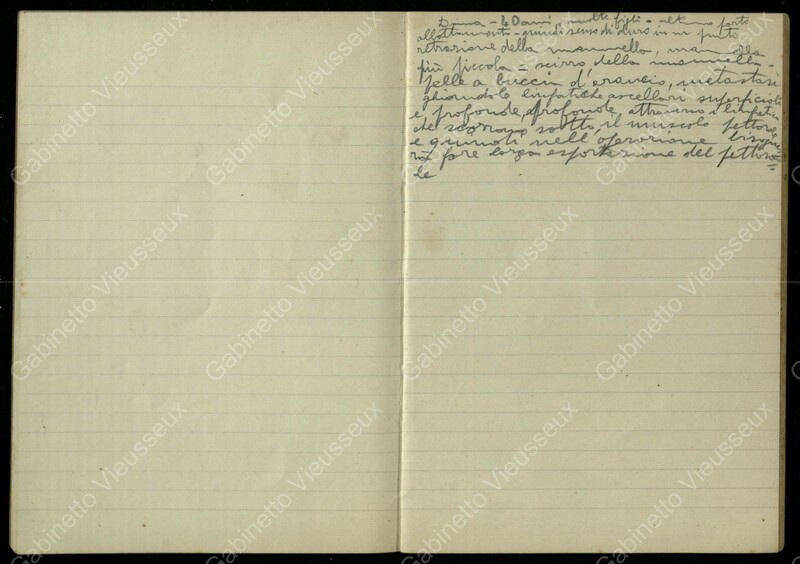 Donna - 40 anni, molti figli - ultimo parto
allattamento - quindi senso di duro in un punto
retrazione della mammella, mammella
più piccola = scirro della mammella -
pelle a buccia d'arancio, metastasi
ghiandole linfatiche ascellari superficiali
e profonde, profonde attraverso i linfatici
che scorrono sotto il muscolo pettorale
e quindi nell'operazione bisogne
rà fare larga esportazione del pettora
le
Gabinetto Vieusseux